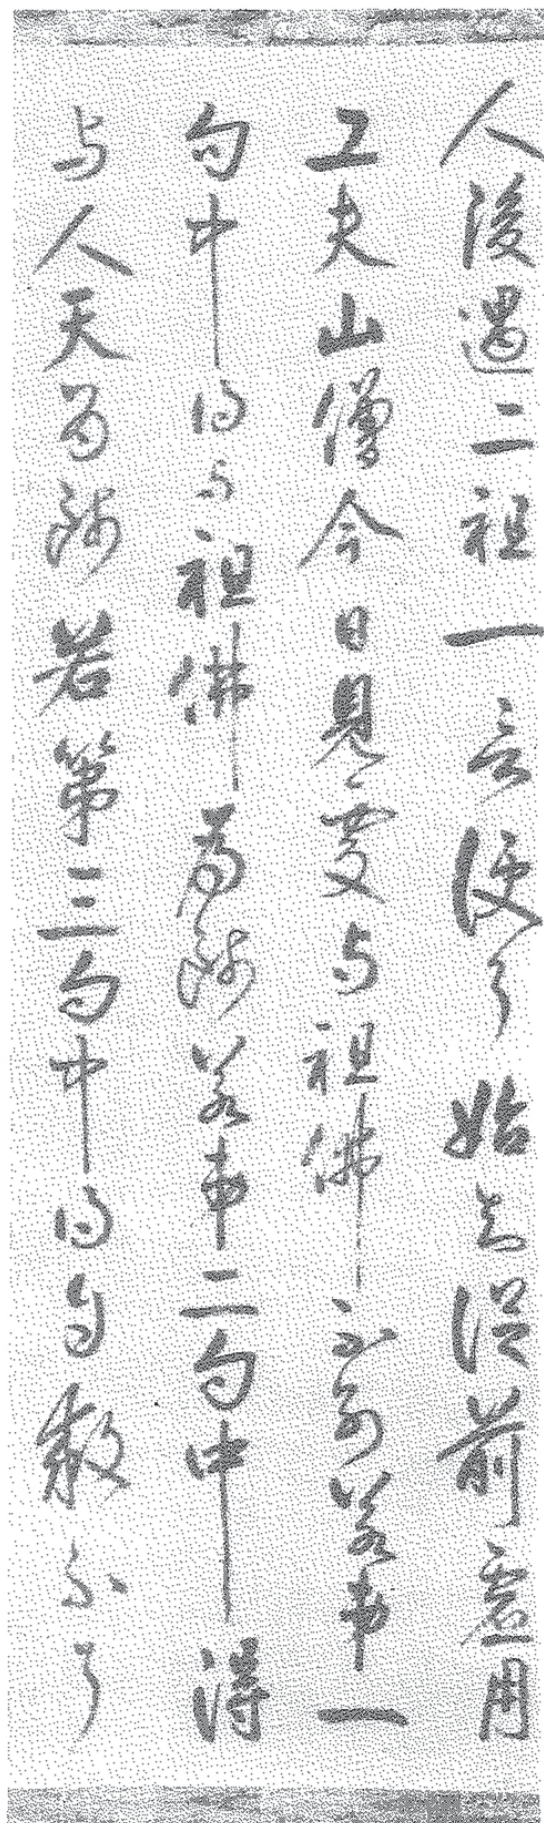 人後遇二祖一言便了始知從前虚用
工夫山僧今日見處与祖佛不別若第一
句中得与祖佛為師若第二句中得
与人天為師若第三句中得自救不了